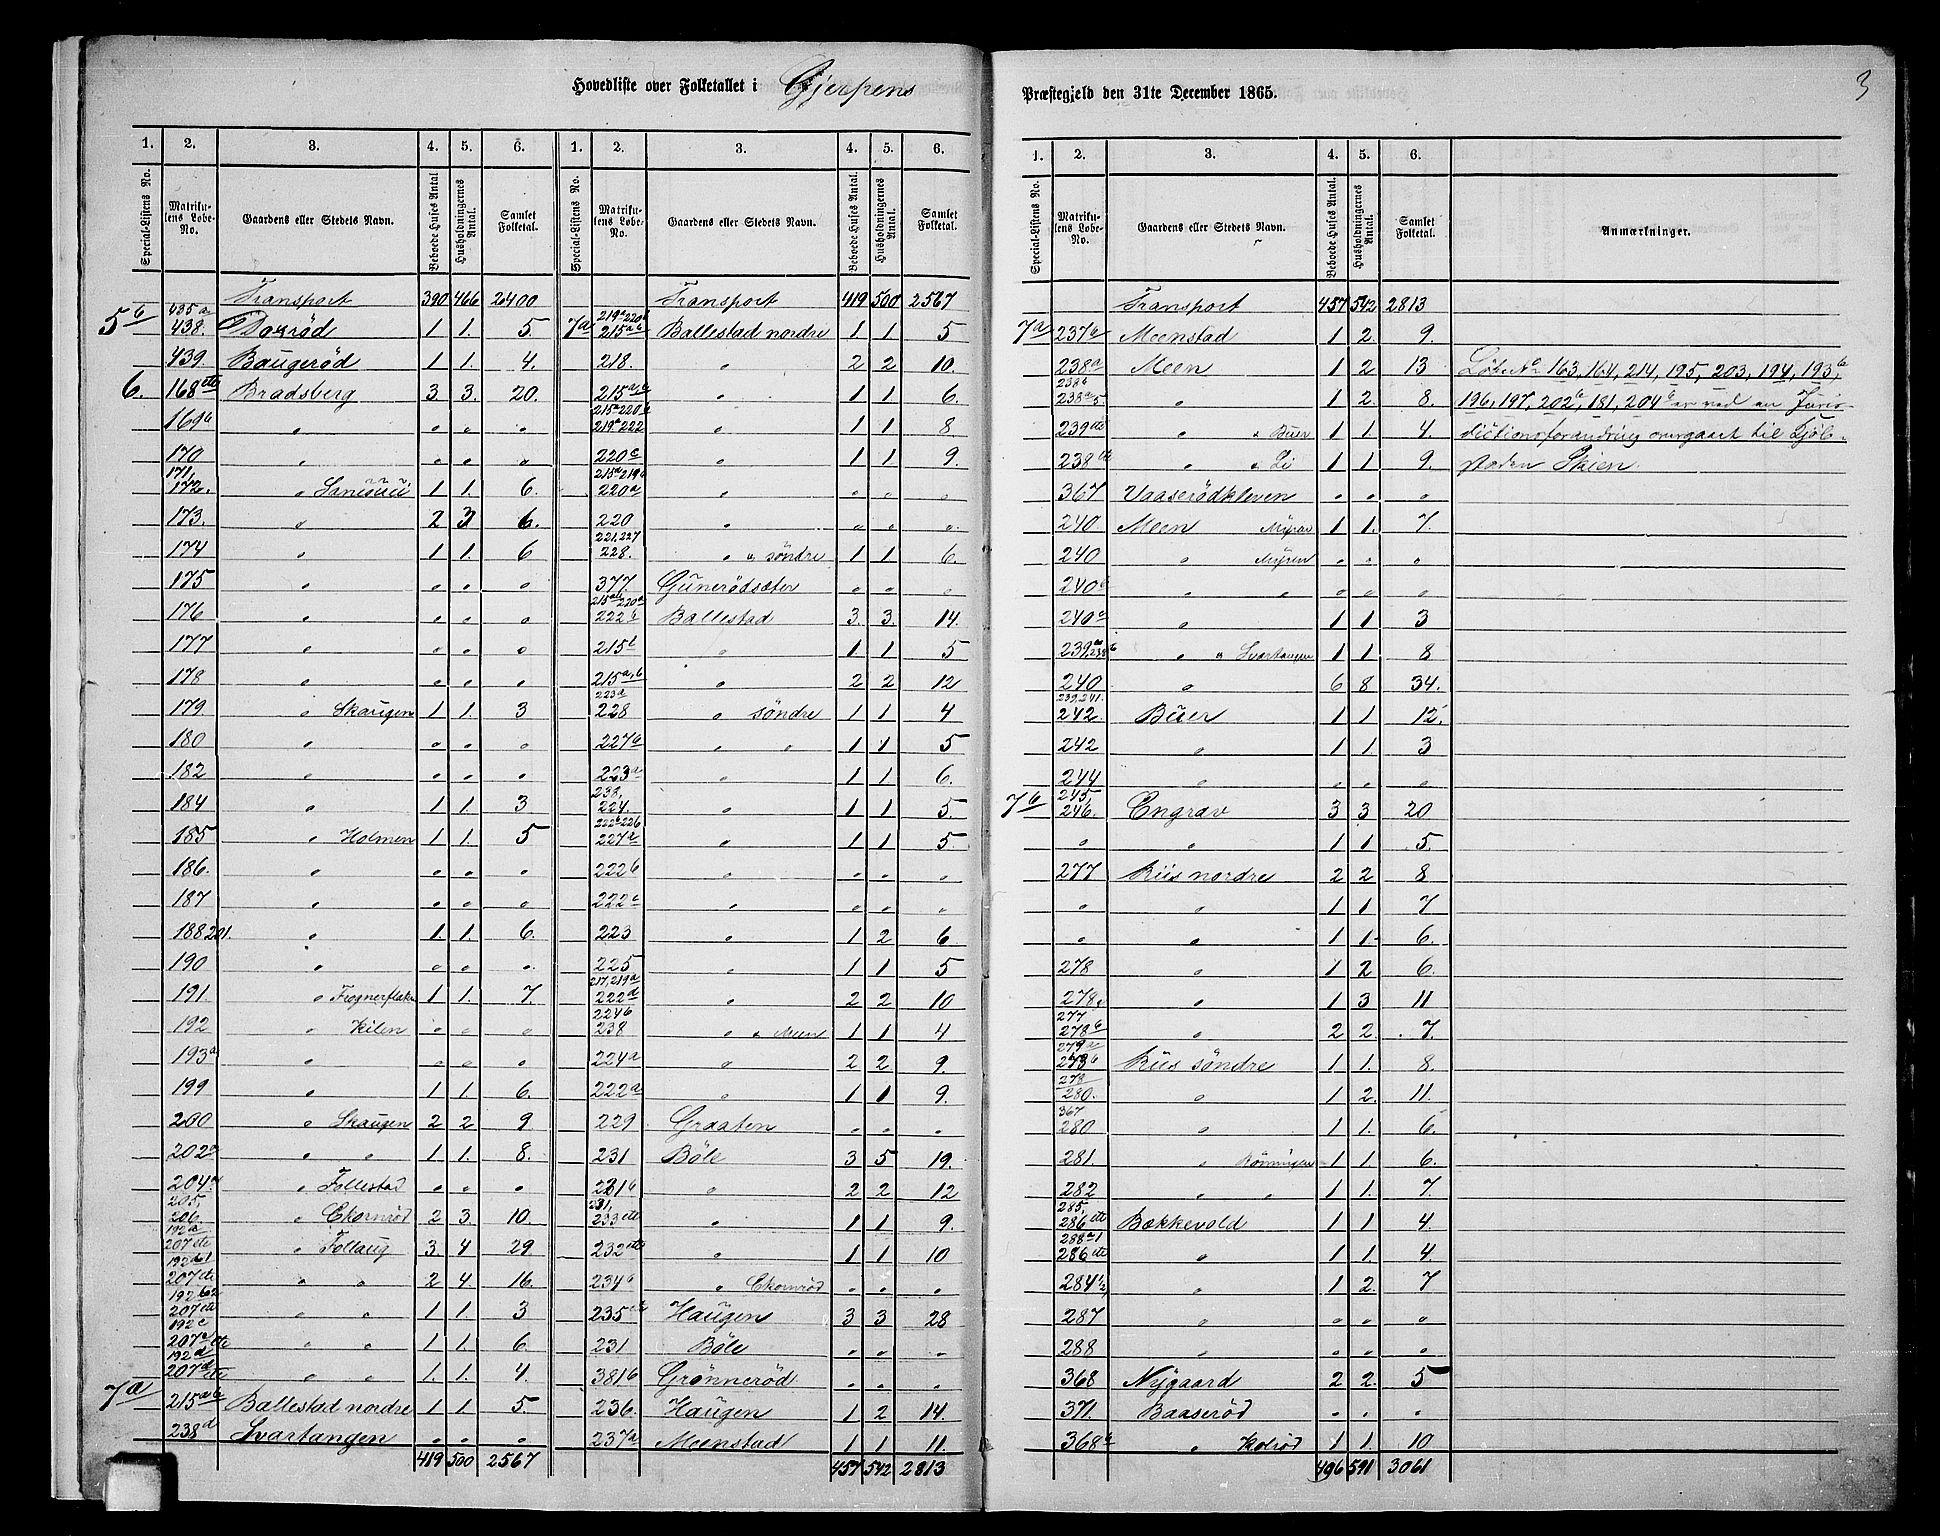 Hovedliste over Folketallet i Gjerpens
Præstegjeld den 31te December 1865.
3
1. 2. 3. 4. 5. 6. 1. 2. 3. 4. 5. 6.
Special-Listens No. Matrikulens Løbe-No. Gaardens eller Stedets Navn. Beboede Huses Antal Husholdningernes Antal. Samlet Folketal. Special-Listens No. Matrikulens Løbe-No. Gaardens eller Stedets Navn. Beboede Huses Antal. Husholdningernes Antal. Samlet Folketal.
Transport 390 466 2400
5b 435a 438. Doxrød 1 1. 5
439 Baugerød 1 1. 4.
6. 168 etc Bradsberg 3 3. 20.
169b " " " "
170 " " " "
171, 172. " 1 1. 6.
173. " 2 3 6.
174 " 1 1. 6
175 " " " "
176 " " " "
177 " " " "
178 " " " "
179 " Skaugen 1 1. 3
180 " " " "
182 " " " "
184 " 1 1. 3
185 " Holmen 1 1. 5
186. " " " "
187 " " " "
188 201. " 1. 1. 6.
190 " " " "
191 " Frognerflaten 1 1. 7.
192 " Kilen " " "
193a " " " "
199 " 1 1. 6.
200 " Skaugen 2 2 9
202a " " 1 1. 8.
204a " Follestad " " "
205, 206. " Ekornrød 2 3. 10.
192a 207 etc " Follaug 3. 4 29
192b1 207 etc " " 2 4. 16.
192b2 207 etc " " 1 1. 3
192c 207a etc " " 1 1. 6
192d 207d etc " " 1. 1. 4.
7a 215ab Ballestad nordre 1 1. 5.
238d Svartangen " " "
419 500 2567
Transport 419 500 2567
7a 219a 220b 215ab Ballestad nordre 1 1 5
218. " 2 2 10.
215a,b " 1 1 6.
215a 220b 219a 222 " 1 1 8
220c " 1 1 9.
215a 219a 220a " " " "
220 " " " "
221, 227 228. " " søndre 1 1 6.
377. Gunerødsæter " " "
215ab 220a 222b Ballestad 3. 3. 14.
215b " 1. 1 5
215a,b " 2 2 12
223a 228 " søndre 1 1 4
227b " " 1 1 5
223a " 1 1 6.
238, 224. " 1 1 5.
222b 226 227a " 1 1 5.
222b " " " "
222c " " " "
223 " 1 2 6
225 " 1 1 5
217, 219a 222d " 2 2 10
224b 238 " " Meen 1 1 4
224a " 2 2 9.
222a " 1 1 9.
229 Graaten " " "
231 Bøle 3 5 19.
231b " 2 2 12
231, 233 etc " 1 1 9.
232 etc " 1 1 10
234a " Ekornrød " " "
235 etc Haugen 3 3 28
231 Bøle " " "
381b Grønnerød " " "
236. Haugen 1 2 14.
237a Meenstad 1 1 11.
457 542 2813
1. 2. 3. 4. 5. 6.
Special-Listens No. Matrikulens Løbe-No. Gaardens eller Stedets Navn. Beboede Huses Antal. Husholdningernes Antal. Samlet Folketal. Anmærkninger.
Transport 457 542 2813
7a 237b Meenstad 1 2. 9.
238a Meen 1 2 13 Løbe No 163, 164, 214, 195, 203, 194, 193b,
238b 238a5 " 1 2. 8. 196, 197, 202b, 181, 204b er ved en Juris-
239 etc " " Buer 1 1. 4. dictionsforandring overgaaet til Kjøb-
238 etc " " Li 1 1 9. staden Skien.
367 Vaaserødkleven " " "
240 Meen Myrar 1 1. 7.
240 " Myren " " "
240b " " " " "
240a " 1 1 3
239a, 238b " " Svartangen 1 1 8
240 " 6 8 34.
239, 241. 242. Buer 1 1 12.
242 " 1 1. 3
244 " " " "
7b 245, 246. Engrav 3 3 20
" " 1 1 5.
277 Riis nordre 2 2 8
" " 1 1 7
" " 1 1. 6.
278 " 1 2 6.
278. " 1 3 11
277 278b " 2 2. 7.
279a 278b Riis søndre 1 1. 8.
278 280. " 1 2. 11.
367 280 " 1 1. 6.
281. " Rønningen 1 1. 6.
282 " " 1 1. 7.
285, 286 etc Bakkevold 1 1 4.
288a1 286 etc " 1 1. 4.
284 " 1 2. 7
287 " " " "
288 " " " "
368 Nygaard 2 2. 5
371. Baaserød " " "
368a " Kolrød 1 1. 10
496 591 3061